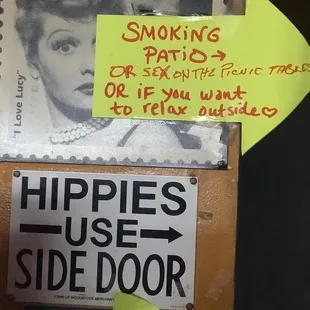 SMOKING
PATIO→
OR SEX ON THE PICNIC TABLES
OR if you want
to relax outside♡
"I Love Lucy"
HIPPIES
USE
SIDE DOOR